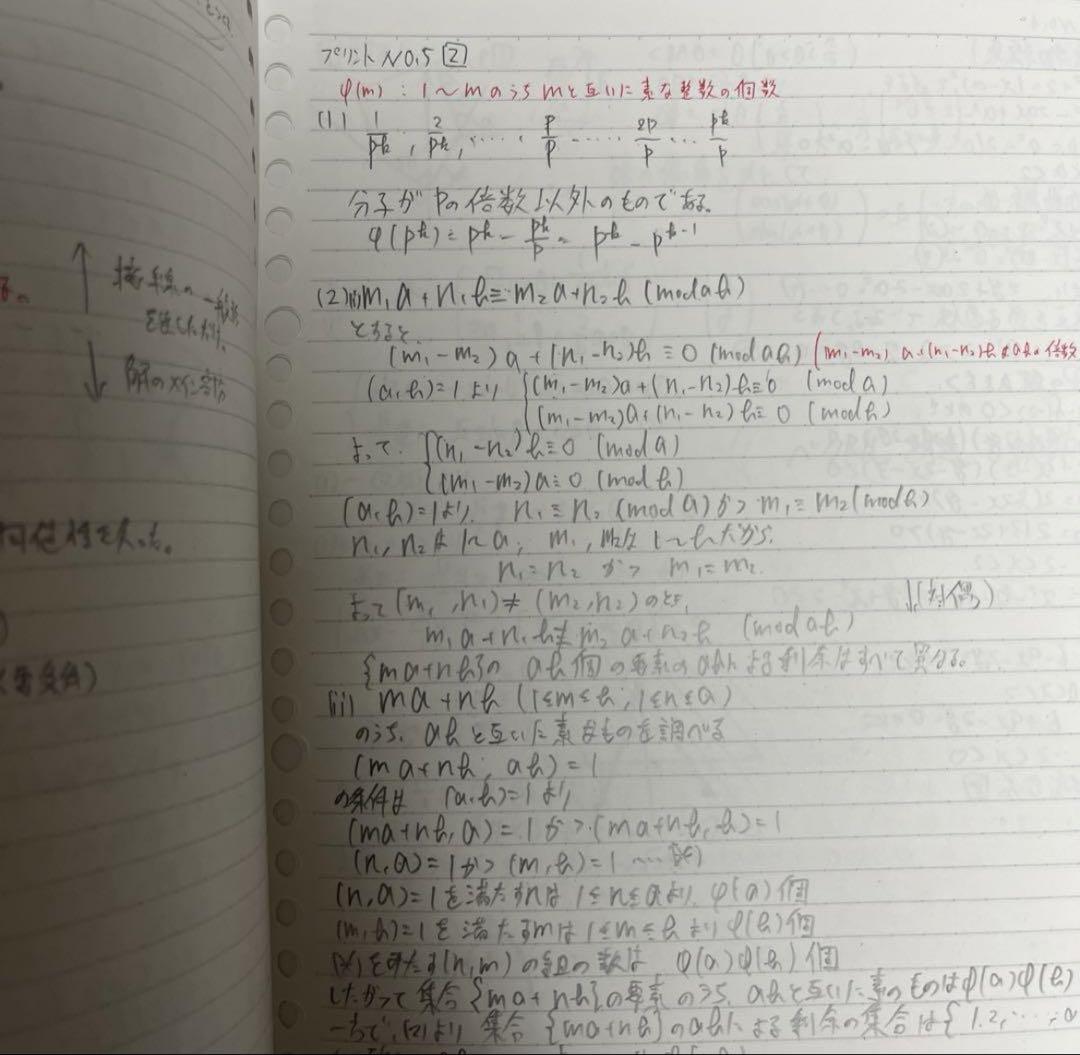 プリントNO.5 [2]
φ(m) : 1～mのうちmと互いに素な整数の個数
(1) 1/p^k , 2/p^k , ‥‥ , p/p ‥‥ 2p/p ‥ p^k/p
分子がpの倍数以外のものである。
φ(p^k) = p^k - p^k/p = p^k - p^{k-1}
(2)(i) m₁a + n₁b ≡ m₂a + n₂b (mod ab)
とすると、
(m₁-m₂)a + (n₁-n₂)b ≡ 0 (mod ab) (m₁-m₂)a+(n₁-n₂)b が ab の倍数
(a,b)=1より { (m₁-m₂)a + (n₁-n₂)b ≡ 0 (mod a)
(m₁-m₂)a + (n₁-n₂)b ≡ 0 (mod b)
よって { (n₁-n₂)b ≡ 0 (mod a)
(m₁-m₂)a ≡ 0 (mod b)
(a,b)=1より、 n₁ ≡ n₂ (mod a)かつm₁ ≡ m₂ (mod b)
n₁, n₂は1～a, m₁, m₂は1～bだから、
n₁ = n₂ かつ m₁ = m₂.
よって(m₁, n₁) ≠ (m₂, n₂)のとき、 ↓(対偶)
m₁a + n₁b ≢ m₂a + n₂b (mod ab)
{ma+nb}の ab個の要素のabによる剰余はすべて異なる。
(ii) ma + nb (1≤m≤b, 1≤n≤a)
のうち、abと互いに素なものを調べる
(ma+nb, ab) = 1
の条件は (a,b)=1より
(ma+nb, a) = 1かつ(ma+nb, b) = 1
(n,a)=1かつ(m,b)=1 …(*)
(n,a)=1を満たすnは 1≤n≤aより、φ(a)個
(m,b)=1を満たすmは1≤m≤bよりφ(b)個
(*)をみたす(n,m)の組の数は φ(a)φ(b)個
したがって集合{ma+nb}の要素のうち、abと互いに素のものはφ(a)φ(b)
一方で、(2)より 集合 {ma+nb}のabによる剰余の集合は{1,2,‥‥,a
接線の一般形
を出しただけ。
解のメイン部分